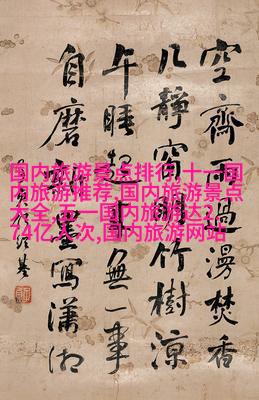 空齋雨過漫焚香
几靜窗明竹樹涼
午睡起來無一事
自磨新墨寫瀟湘
国内旅游景点排行,十一国
内旅游推荐,国内旅游景点
大全,五一国内旅游达2.
74亿人次,国内旅游网站